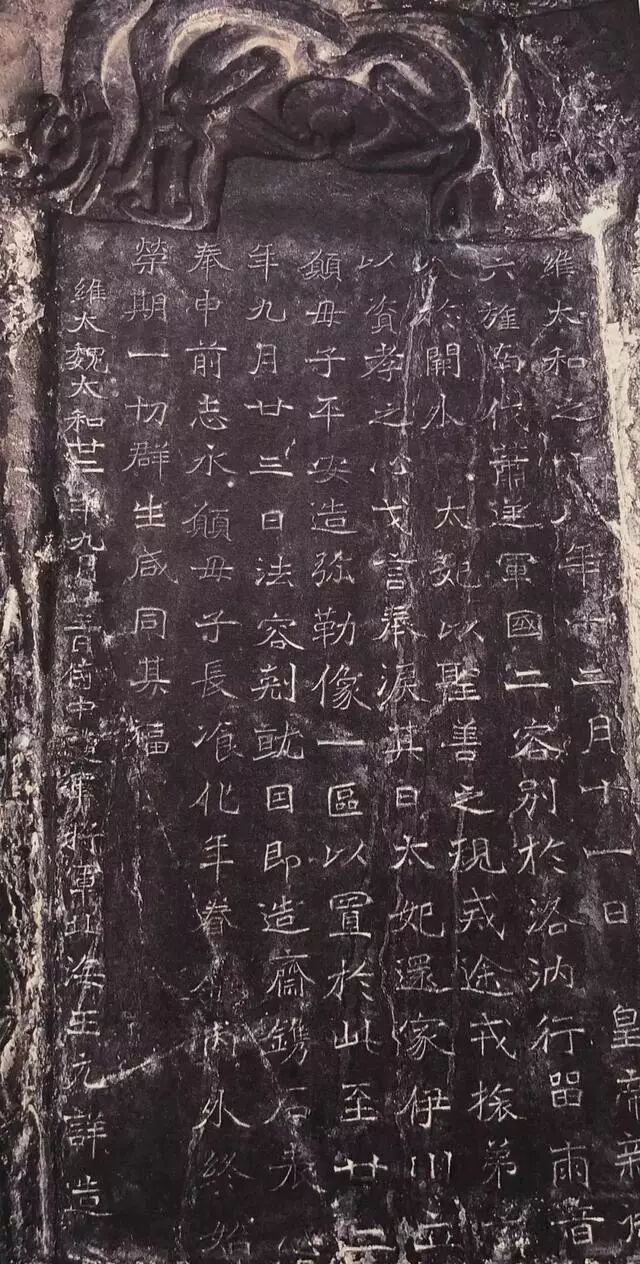 維太和之十八年十二月十一日　皇帝親御
六旌南伐蕭逆軍國二容別於洛汭行畱兩音
分於闕外　太妃以聖善之規戒途戎旅弟子
以資孝之心戈言奉淚其日太妃還家伊川立
願母子平安造弥勒像一區以置於此至廿二
年九月廿三日法容剋就因即造齋鐫石表心
奉申前志永願母子長飡化年眷屬內外終始
榮期一切群生咸同其福
維大魏太和廿二年九月廿三日侍中護軍將軍北海王元詳造